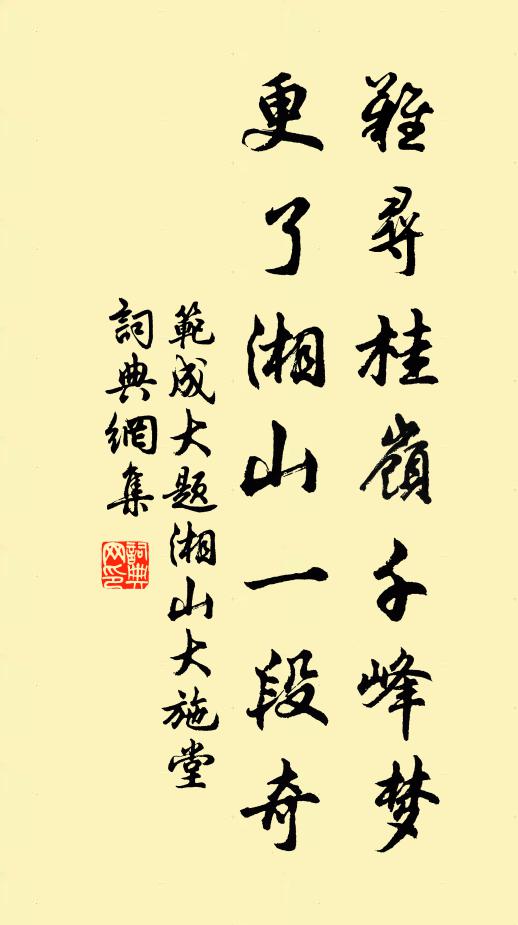 難尋桂嶺千峰梦
更了湘山一段奇
範成大题湘山大施堂
詞典網集
詞典网印